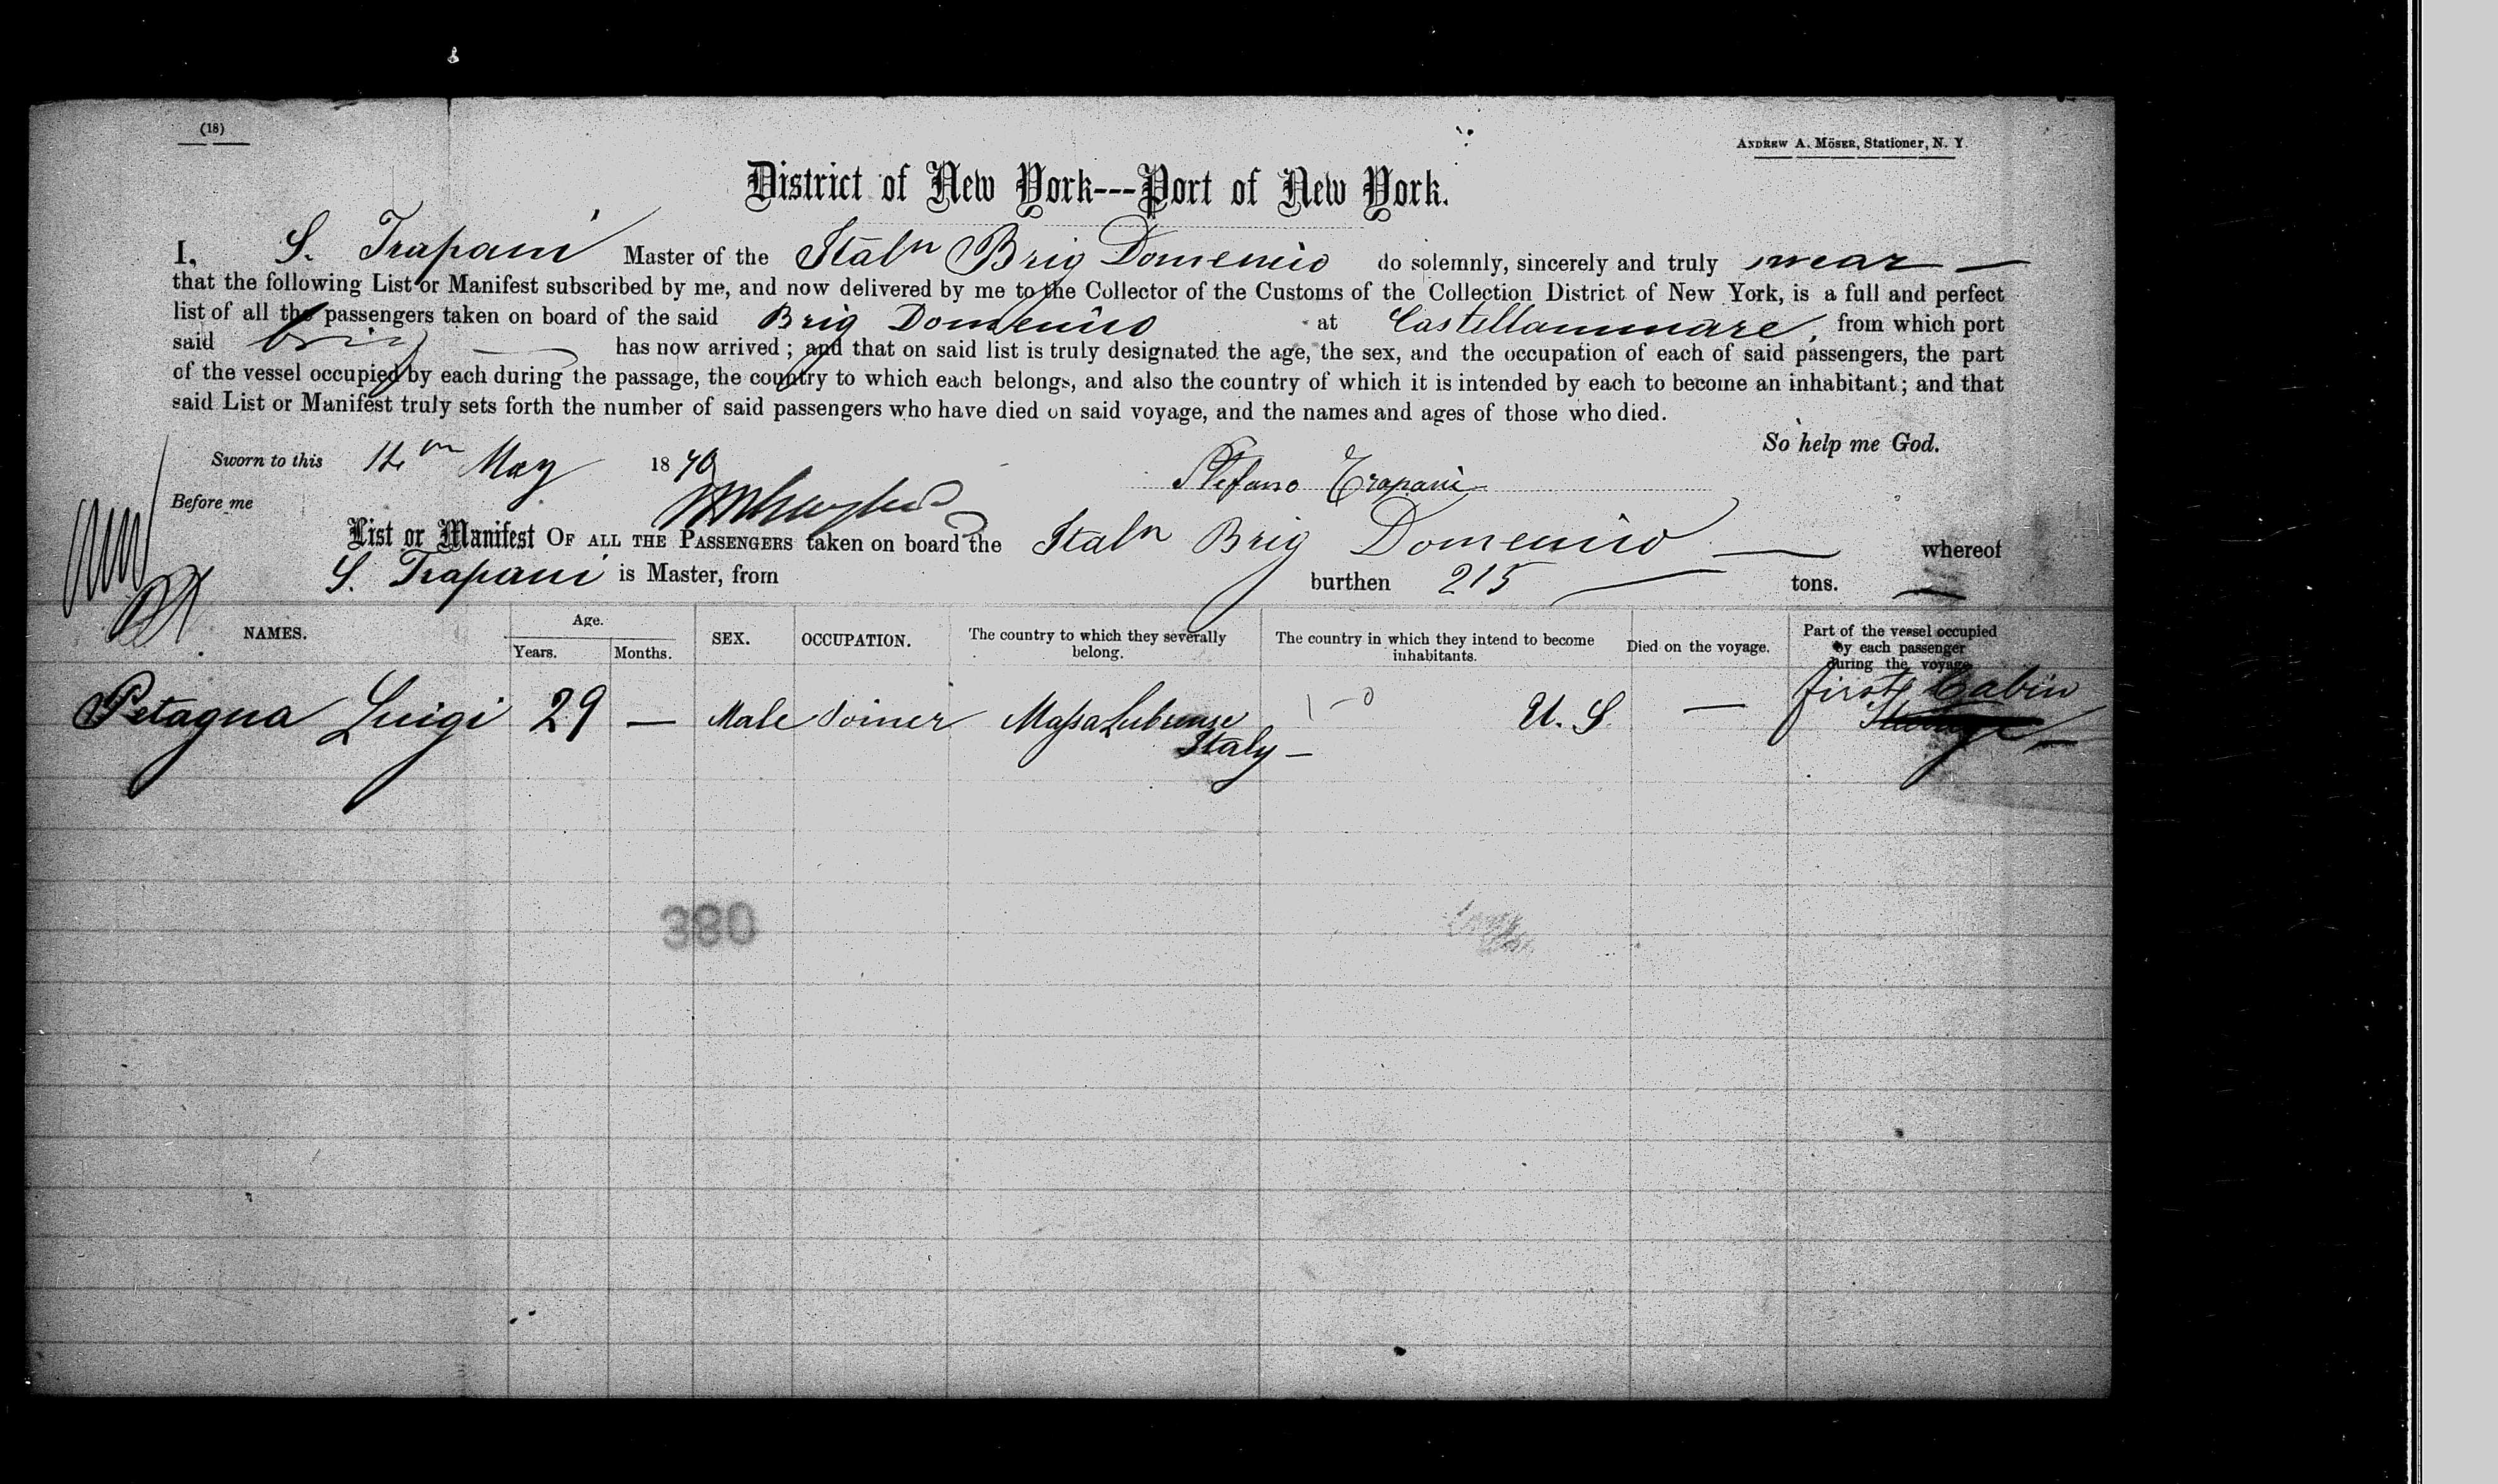 (18)
ANDREW A. MÖSER, Stationer, N. Y.
District of New York---Port of New York.
I, S. Trapani Master of the Italn Brig Domenico do solemnly, sincerely and truly swear —
that the following List or Manifest subscribed by me, and now delivered by me to the Collector of the Customs of the Collection District of New York, is a full and perfect
list of all the passengers taken on board of the said Brig Domenico at Castellammare, from which port
said brig has now arrived; and that on said list is truly designated the age, the sex, and the occupation of each of said passengers, the part
of the vessel occupied by each during the passage, the country to which each belongs, and also the country of which it is intended by each to become an inhabitant; and that
said List or Manifest truly sets forth the number of said passengers who have died on said voyage, and the names and ages of those who died.
So help me God.
Sworn to this May 1879
Stefano Trapani
Before me
List or Manifest OF ALL THE PASSENGERS taken on board the Italn Brig Domenico — whereof
S. Trapani is Master, from burthen 215 — tons.
NAMES. Age. Years. Months. SEX. OCCUPATION. The country to which they severally belong. The country in which they intend to become inhabitants. Died on the voyage. Part of the vessel occupied by each passenger during the voyage
Petagna Luigi 29 — Male Joiner Massa Lubrense Italy — U. S. — first Cabin
380